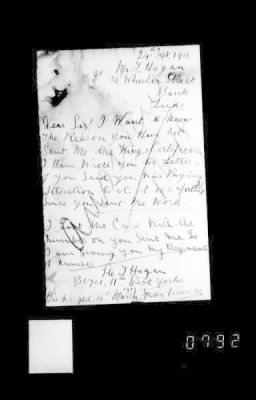 24th Sept 1918
Mr J Hogan
90 Wheeler Street
Bank
Leeds
Dear Sir I Want to know
the Reason you Have not
Sent Me the King's Certificate
I Have Wrote you a Letter
& you Said you Was Paying
Attention to it. it is a
Since you Sent Me Word
I Lost the Card With the
Number on you Sent Me So
I am Giving you My Regimental
Number
J Hogan
11th West Yorks
March
0792